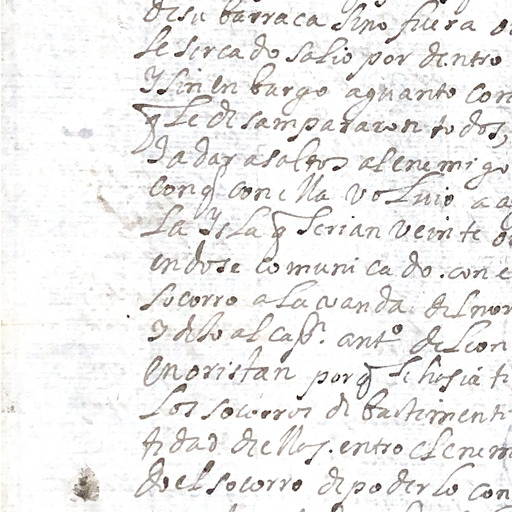 de su barraca sino fuera
le sercado salio por dentro
y sin enbargo aguanto con
q le desampararon todos,
da dar asaltos al enemigo
conq con ella voluio a
la ysla q serian veinte
endose comunicado. con e
socorro a la vanda del nor
y dho al capn. anto de leon
en oristan porq le hasia
los socorros de bastimento
tidad de ellos. entro el enem
do el socorro de poderlo con